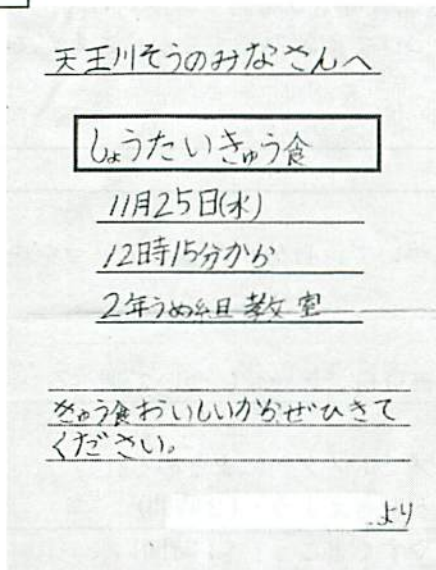 天王川そうのみなさんへ
しょうたいきゅう食
11月25日(水)
12時15分から
2年うめ組教室
きゅう食おいしいからぜひきて
ください。
より